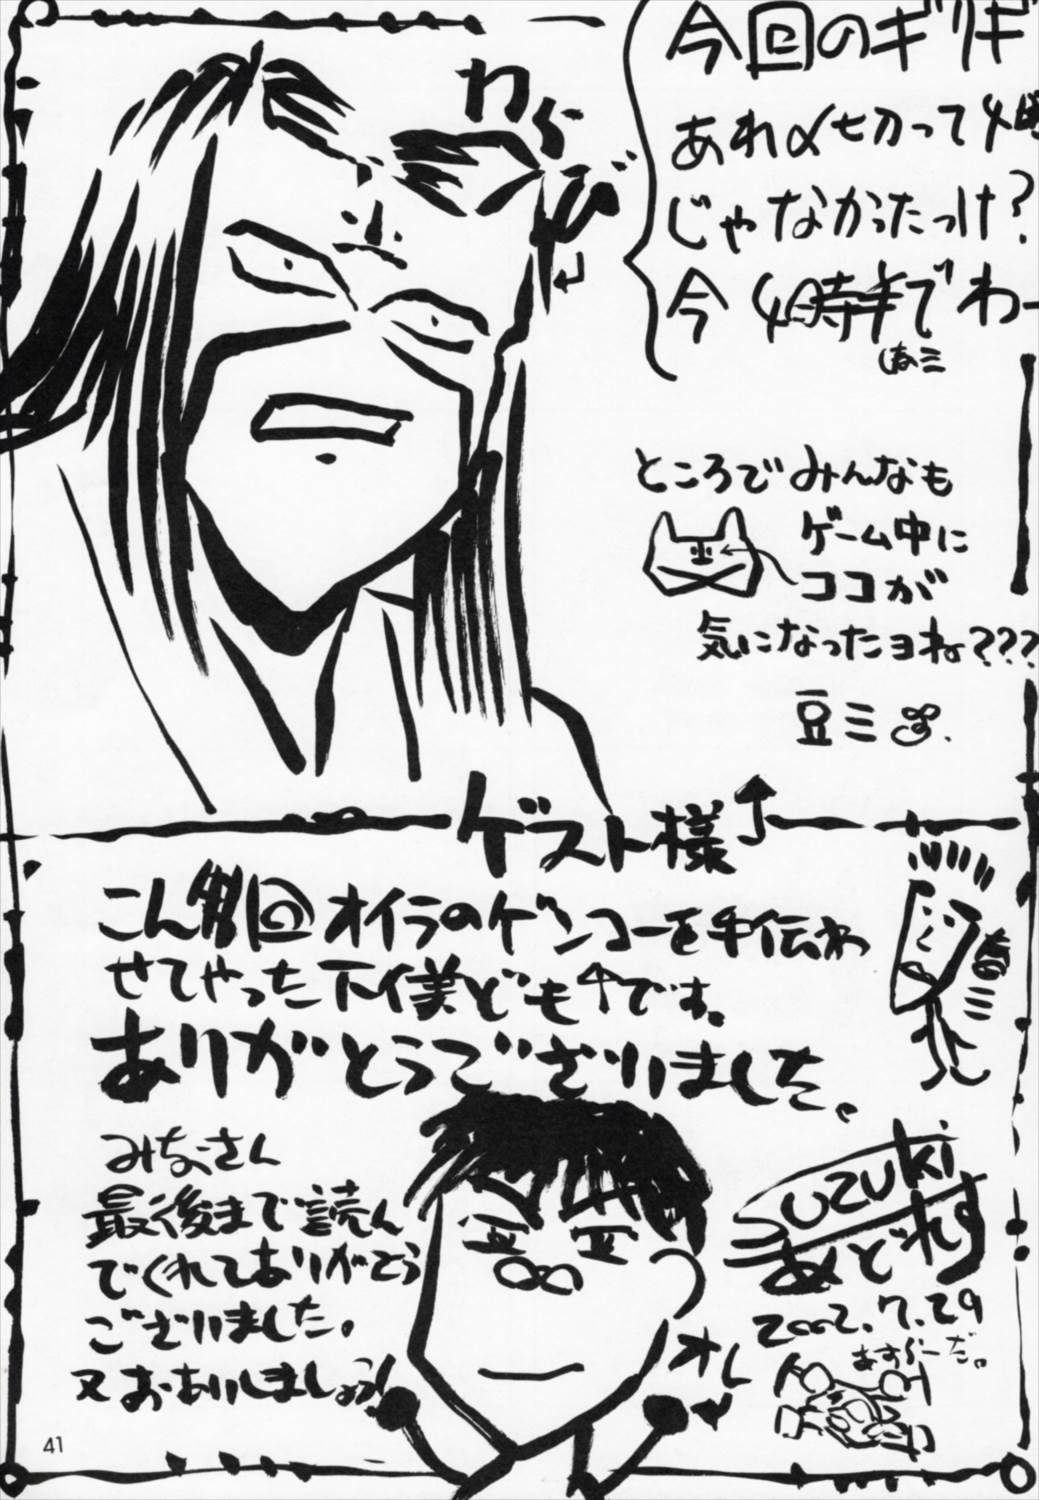 今回のギリギ
あれ〆切って4時
じゃなかったっけ?
今4時半でわー
わらび
ところでみんなも
ゲーム中に
ココが
気になったヨね???
豆ミ
ゲスト様↑
こん回オイラのゲンコーを手伝わ
せてやった下僕ども↑です。
ありがとうございました。
みなさん
最後まで読ん
でくれてありがとう
ございました。
又おあいしましょう!
オレ
SUZUKI
あどれす
2002.7.29
41